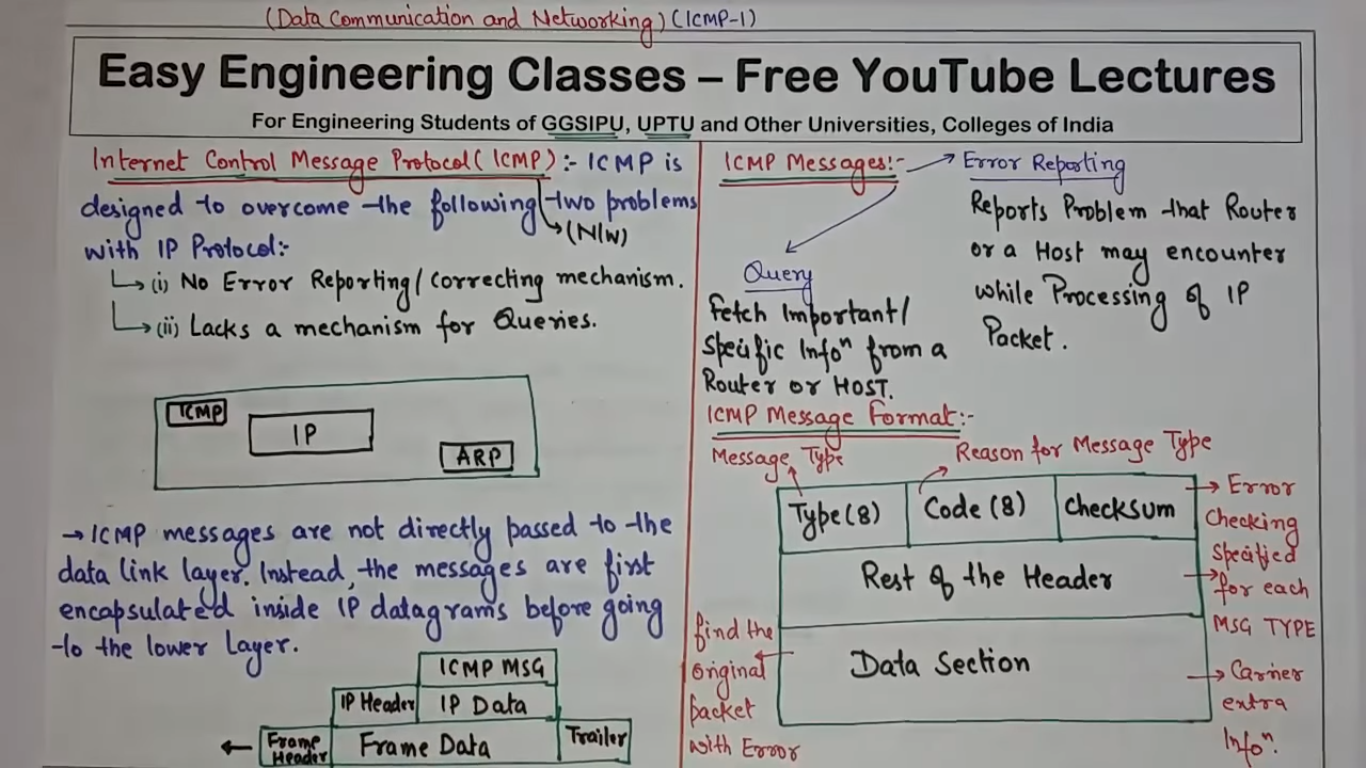 (Data Communication and Networking) (ICMP-1)
Easy Engineering Classes – Free YouTube Lectures
For Engineering Students of GGSIPU, UPTU and Other Universities, Colleges of India
Internet Control Message Protocol (ICMP) :- ICMP is
designed to overcome the following two problems
(N/W)
with IP Protocol:-
(i) No Error Reporting / Correcting mechanism.
(ii) Lacks a mechanism for Queries.
ICMP
IP
ARP
→ ICMP messages are not directly passed to the
data link layer. Instead, the messages are first
encapsulated inside IP datagrams before going
to the lower layer.
ICMP MSG
IP Header IP Data
Frame Header Frame Data Trailer
ICMP Messages:-
Error Reporting
Reports Problem that Router
or a Host may encounter
while Processing of IP
Packet.
Query
Fetch Important/
Specific Infoⁿ from a
Router or HOST.
ICMP Message Format:-
Message Type
Reason for Message Type
Type (8) Code (8) Checksum
Rest of the Header
Data Section
Error
Checking
Specified
for each
MSG TYPE
Carrier
extra
Infoⁿ.
find the
original
packet
with Error